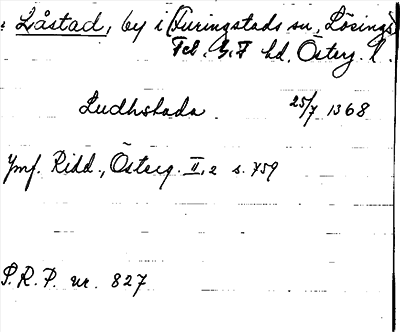 Låstad, by i (Furingstads sn, Lösings
hd, Österg. l.
Ludhstada. 25/7 1368
Jmf. Ridd., Österg. II,2 s. 759
P.R.P. nr. 827